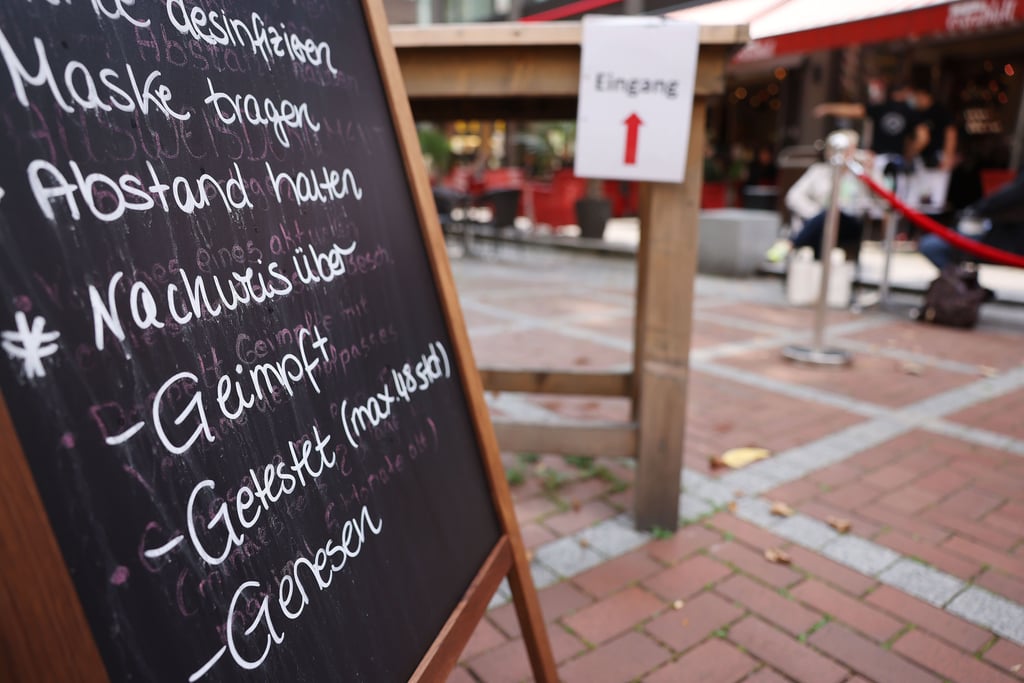 desinfizieren
Maske tragen
Abstand halten
* Nachwris über
- Geimpft
- Getestet (max. 48 std)
- Genesen
Eingang